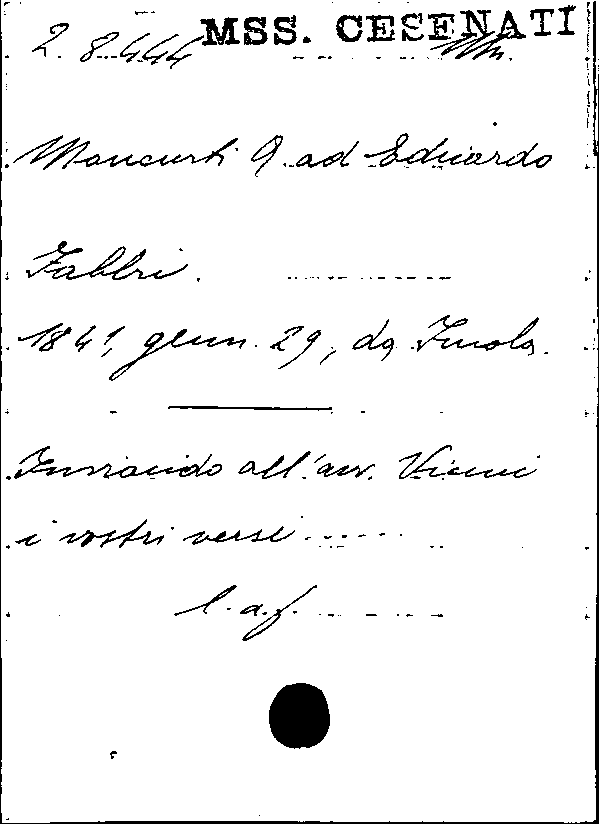 MSS. CESENATI
2.8.444
Mancurti G. ad Eduardo
Fabbri.
1841, genn. 29, da Imola.
Inviando all'avv. Vicini
i vostri versi .....
l. a. f.